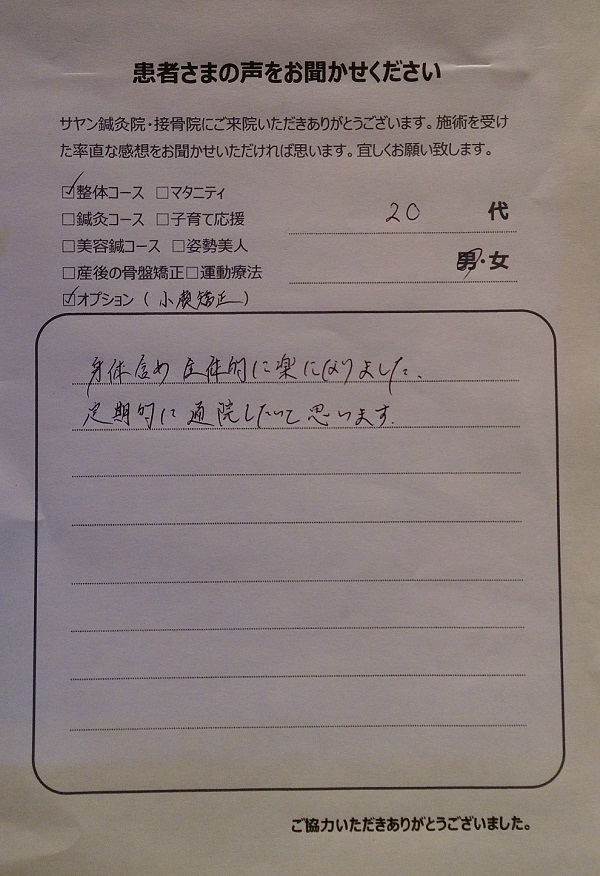 患者さまの声をお聞かせください
サヤン鍼灸院・接骨院にご来院いただきありがとうございます。施術を受け
た率直な感想をお聞かせいただければ思います。宜しくお願い致します。
☑整体コース □マタニティ
□鍼灸コース □子育て応援
20 代
□美容鍼コース □姿勢美人
男・女
□産後の骨盤矯正□運動療法
☑オプション（小顔矯正）
身体含め全体的に楽になりました。
定期的に通院したいと思います。
ご協力いただきありがとうございました。